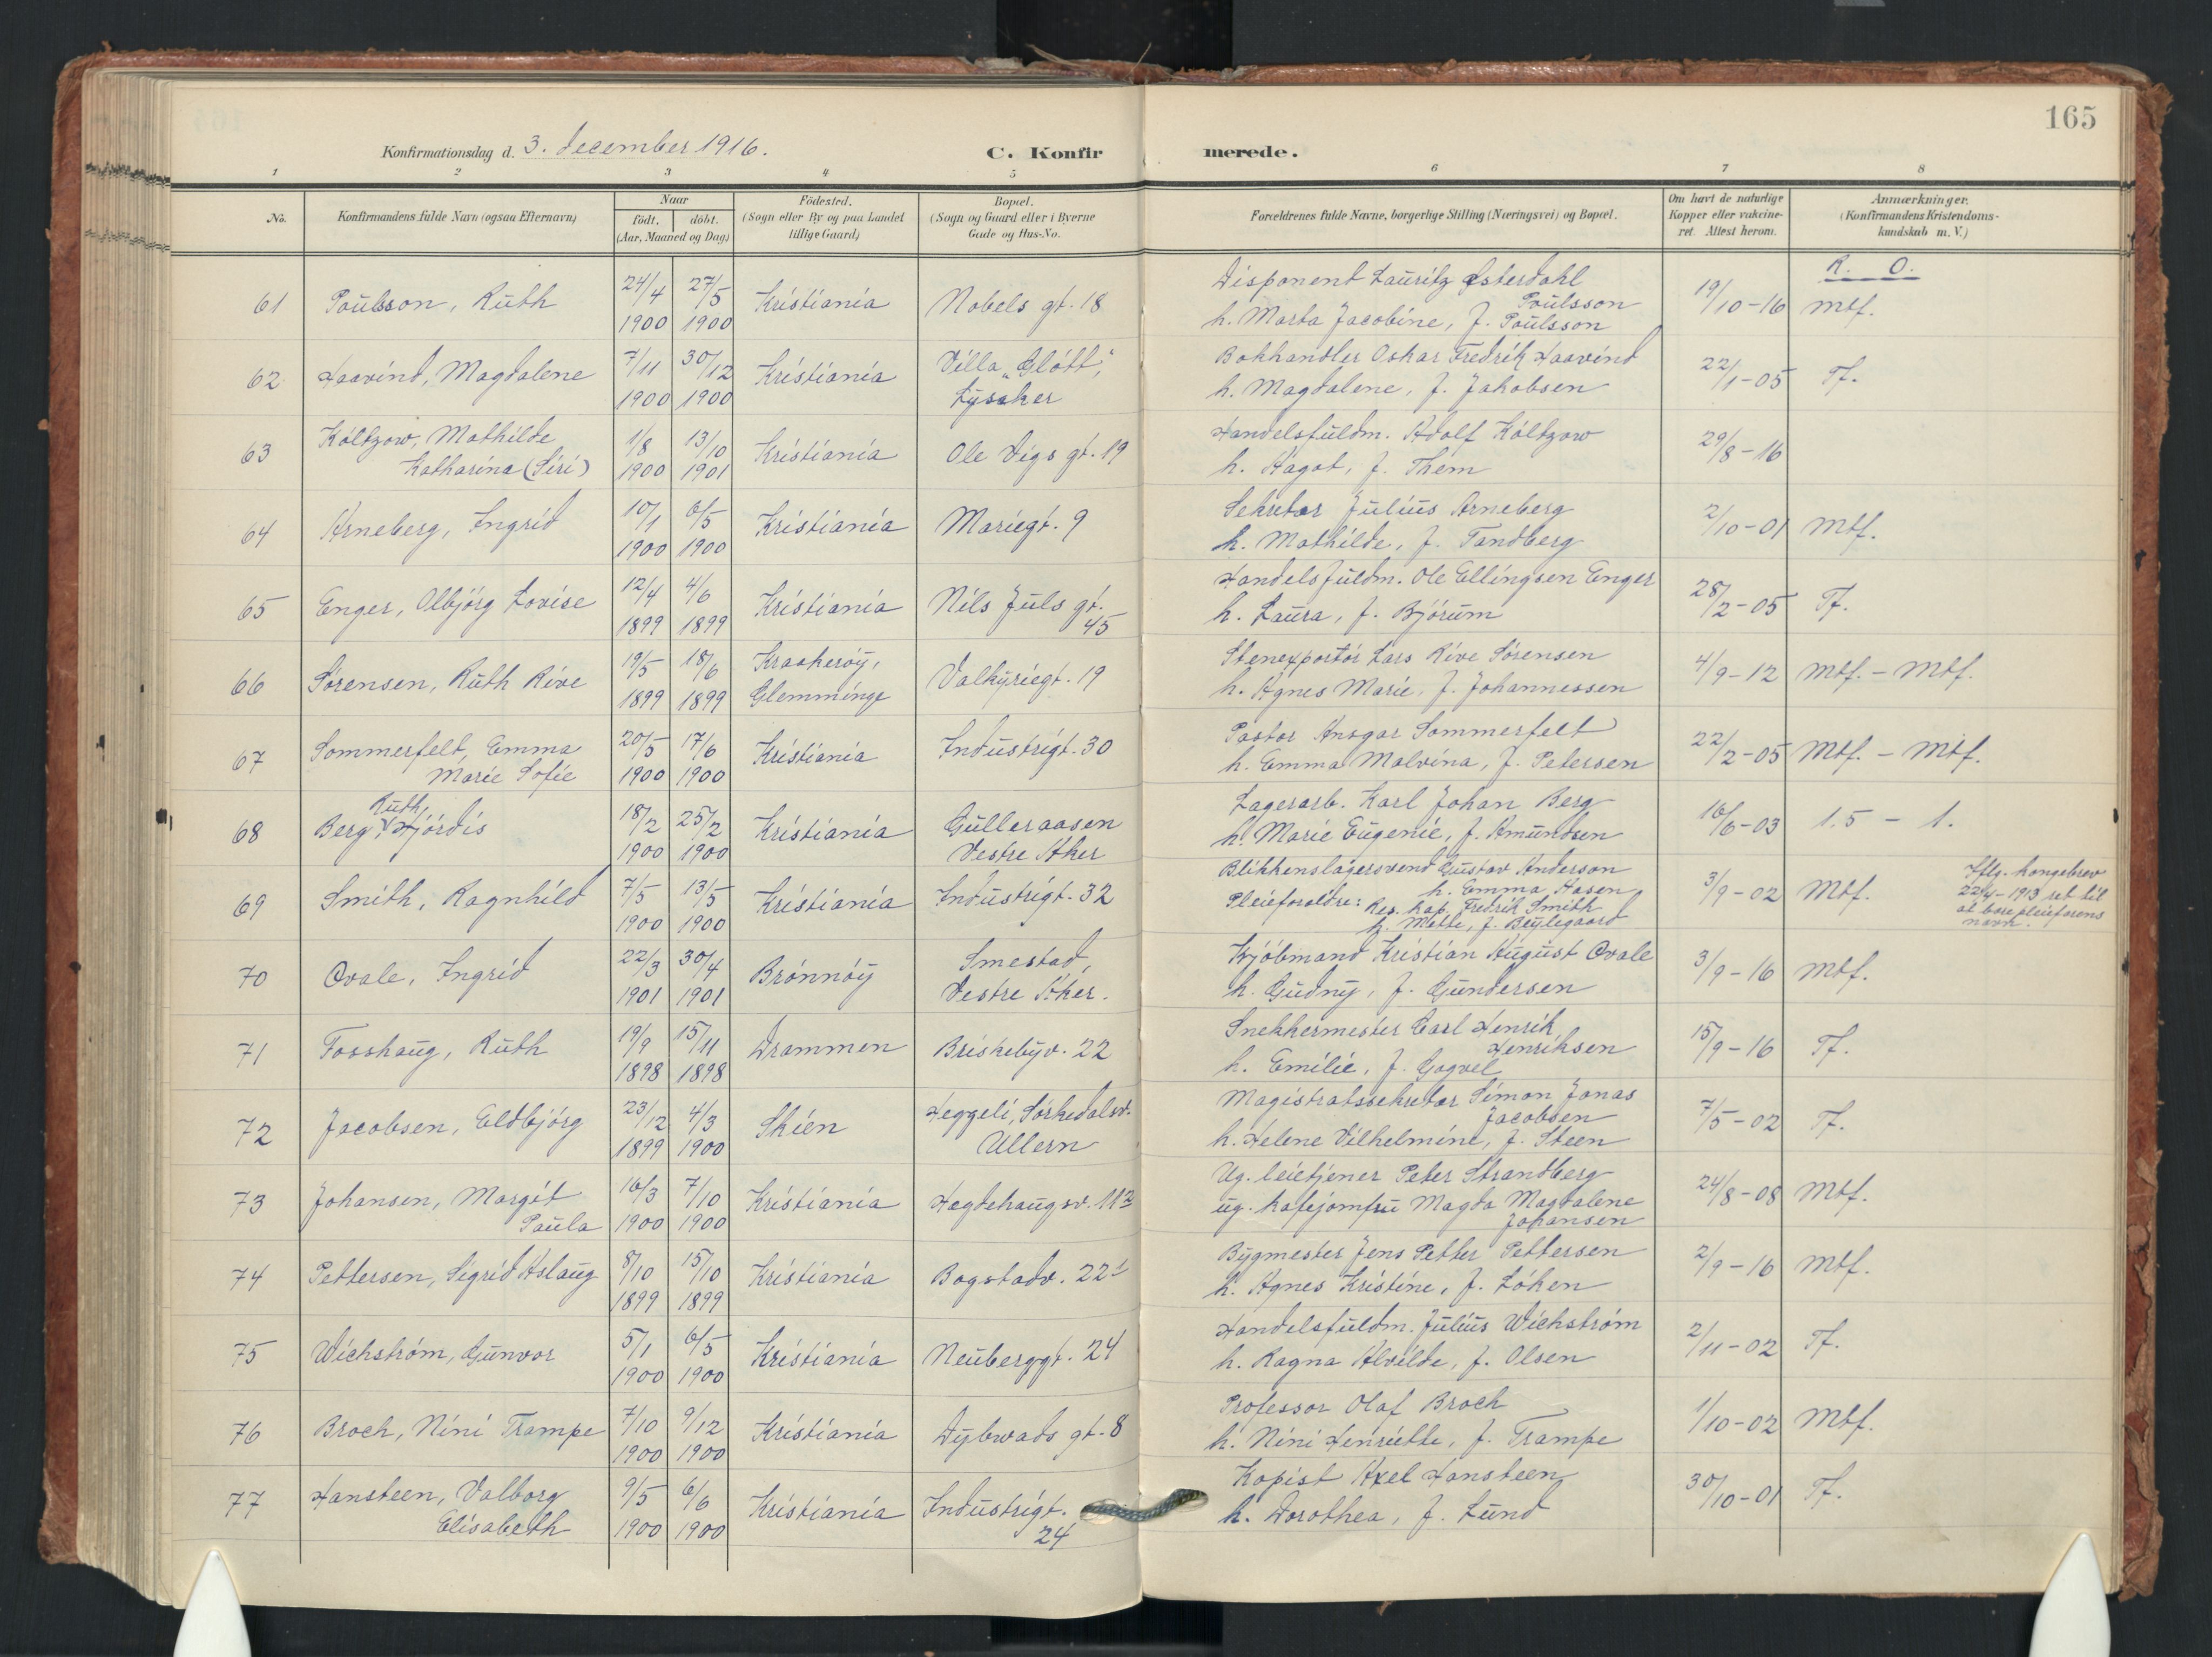 165
Konfirmationsdag d. 3. december 1916. C. Konfirmerede.
1 2 3 4 5 6 7 8
No. Konfirmandens fulde Navn (ogsaa Efternavn) Naar födt. döbt. (Aar, Maaned og Dag) Födested. (Sogn eller By og paa Landet tillige Gaard) Bopæl. (Sogn og Gaard eller i Byerne Gade og Hus-No. Forældrenes fulde Navne, borgerlige Stilling (Næringsvei) og Bopæl. Om havt de naturlige Kopper eller vakcineret. Attest herom. Anmærkninger. (Konfirmandens Kristendomskundskab m. V.)
R. O.
61 Poulsson, Ruth 24/4 1900 27/5 1900 Kristiania Nobels gt. 18 Disponent Lauritz Østerdahl Poulsson
h. Marta Jacobine, f. Poulsson 19/10-16 Mtf.
62 Haavind, Magdalene 7/11 1900 30/12 1900 Kristiania Villa "Gløtt", Lysaker Bokhandler Oskar Fredrik Haavind
h. Magdalene, f. Jakobsen 22/1-05 Tf.
63 Koltzow, Mathilde Katharina (Siri) 1/8 1900 13/10 1901 Kristiania Ole Vigs gt. 19 Handelsfuldm. Adolf Koltzow
h. Hagot, f. Them 29/8-16
64 Arneberg, Ingrid 10/1 1900 6/5 1900 Kristiania Mariegt. 9 Sekretær Julius Arneberg
h. Mathilde, f. Tandberg 2/10-01 Mtf.
65 Enger, Olbjörg Lovise 12/4 1899 4/6 1899 Kristiania Nils Juls gt. 45 Handelsfuldm. Ole Ellingsen Enger
h. Laura, f. Bjórum 28/2-05 Tf.
66 Sørensen, Ruth Rive 19/5 1899 18/6 1899 Kraakeröy, Glemminge Valkyriegt. 19 Stenexportör Lars Rive Sørensen
h. Agnes Marie, f. Johannessen 4/9-12 Mtf. - Mtf.
67 Sommerfelt, Emma Marie Sofie 20/5 1900 17/6 1900 Kristiania Industrigt. 30 Pastor Ansgar Sommerfelt
h. Emma Malvina, f. Petersen 22/2-05 Mtf. - Mtf.
68 Berg, Ruth Hjördis 18/2 1900 25/2 1900 Kristiania Gulleraasen Vestre Aker Lagerarb. Karl Johan Berg
h. Marie Eugenie, f. Amundsen 16/6-03 1.5 - 1.
69 Smith, Ragnhild 7/5 1900 13/5 1900 Kristiania Industrigt. 32 Blikkenslagersvend Gustav Anderson
h. Emma Hasen
Pleieforældre: Res. kap. Fredrik Smith
h. Mette, f. Beylegaard 3/9-02 Mtf. Iflg. kongebrev 22/4-1913 ret til at bære pleiefarens navn.
70 Qvale, Ingrid 22/3 1901 30/4 1901 Brönnöy Smestad, Vestre Aker. Kjöbmand Kristian August Qvale
h. Gudny, f. Gundersen 3/9-16 Mtf.
71 Fosshaug, Ruth 19/9 1898 15/11 1898 Drammen Briskebyv. 22 Snekkermester Carl Henrik Henriksen
h. Emilie, f. Gogvel 15/9-16 Tf.
72 Jacobsen, Eldbjörg 23/12 1899 4/3 1900 Skien Heggeli, Sörkedalsv. Ullern Magistratssekretær Simon Jonas Jacobsen
h. Helene Vilhelmine, f. Steen 7/5-02 Tf.
73 Johansen, Margit Paula 16/3 1900 7/10 1900 Kristiania Hegdehaugsv. 11 2 Ug. leietjener Peter Strandberg
ug. kafejomfru Magda Magdalene Johansen 24/8-08 Mtf.
74 Pettersen, Sigrid Aslaug 8/10 1899 15/10 1899 Kristiania Bogstadv. 22 1 Bygmester Jens Petter Pettersen
h. Agnes Kristine, f. Löken 2/9-16 Mtf.
75 Wichström, Gunvor 5/1 1900 6/5 1900 Kristiania Neuberggt. 24 Handelsfuldm. Julius Wichström
h. Ragna Alvilde, f. Olsen 2/11-02 Tf.
76 Broch, Nini Trampe 7/10 1900 9/12 1900 Kristiania Dybwads gt. 8 Professor Olaf Broch
h. Nini Henriette, f. Trampe 1/10-02 Mtf.
77 Hansteen, Valborg Elisabeth 9/5 1900 6/6 1900 Kristiania Industrigt. 24 Kopist Axel Hansteen
h. Dorothea, f. Lund 30/10-01 Tf.